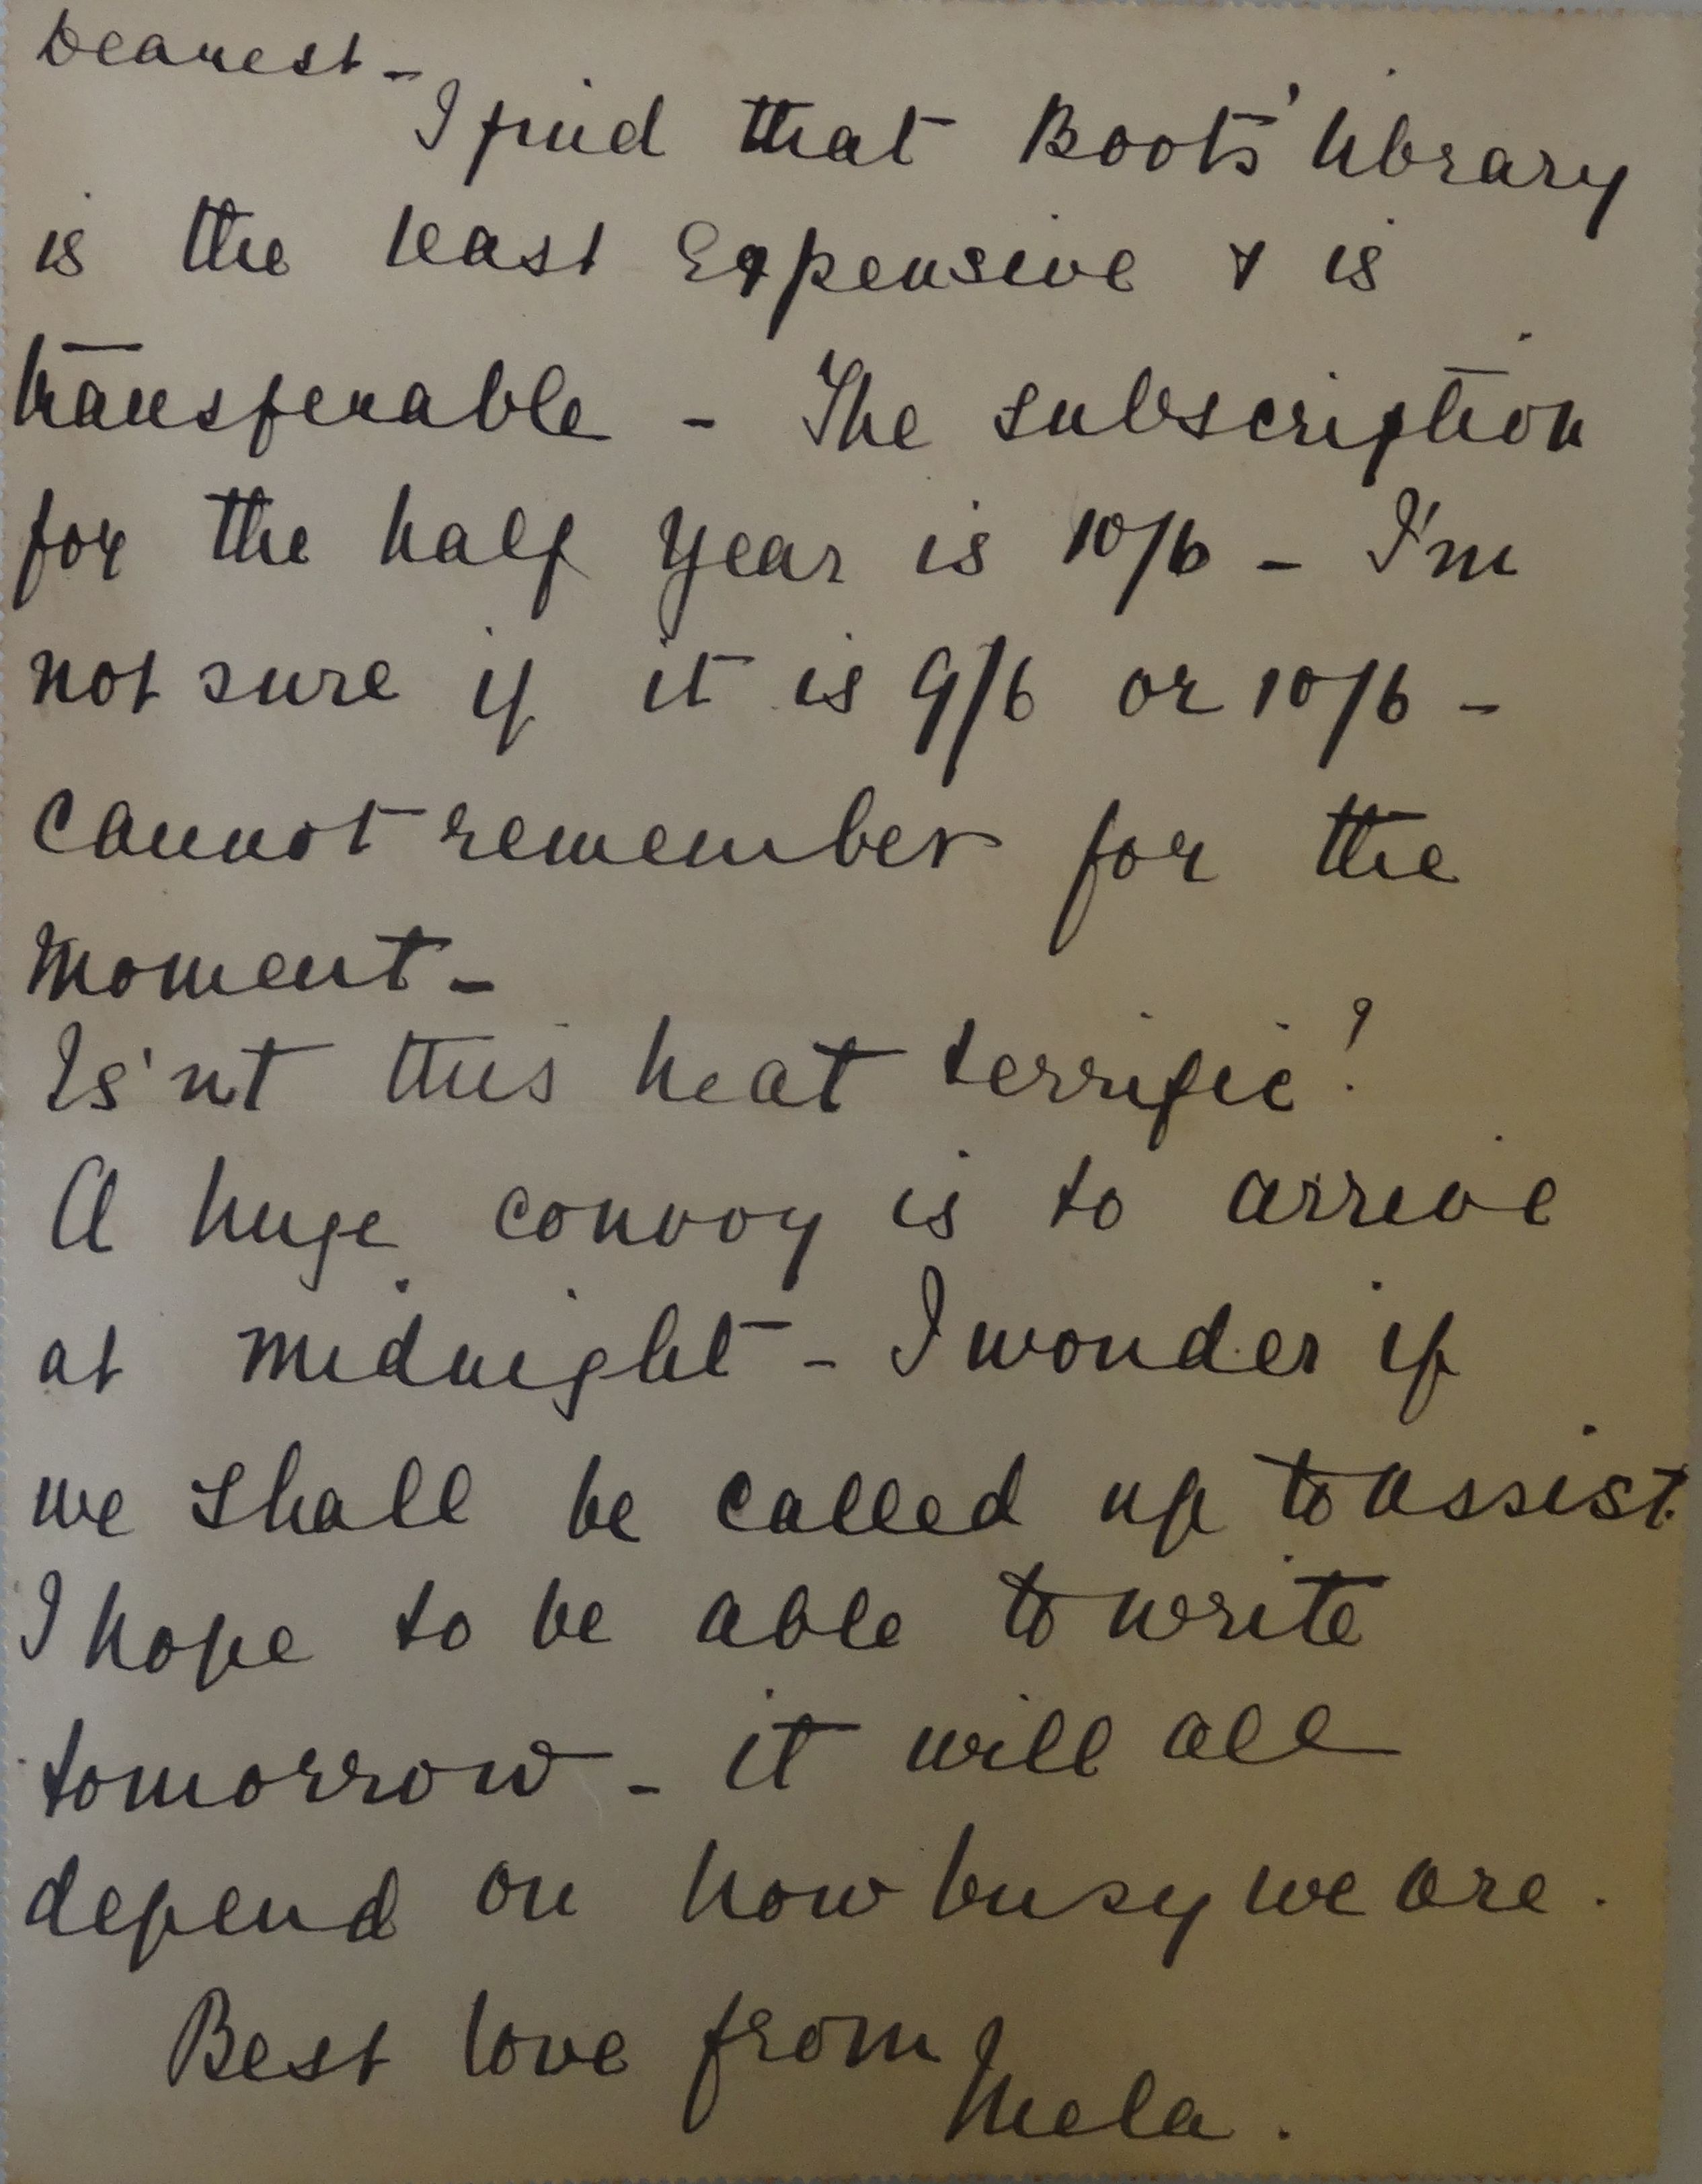 Dearest -
I find that Boots' library
is the least Expensive & is
transferable - The subscription
for the half year is 10/6 - I'm
not sure if it is 9/6 or 10/6 -
cannot remember for the
moment -
Is'nt this heat terrific!
A huge convoy is to arrive
at midnight - I wonder if
we shall be called up to assist.
I hope to be able to write
tomorrow - it will all
depend on how busy we are.
Best love from
Mela.